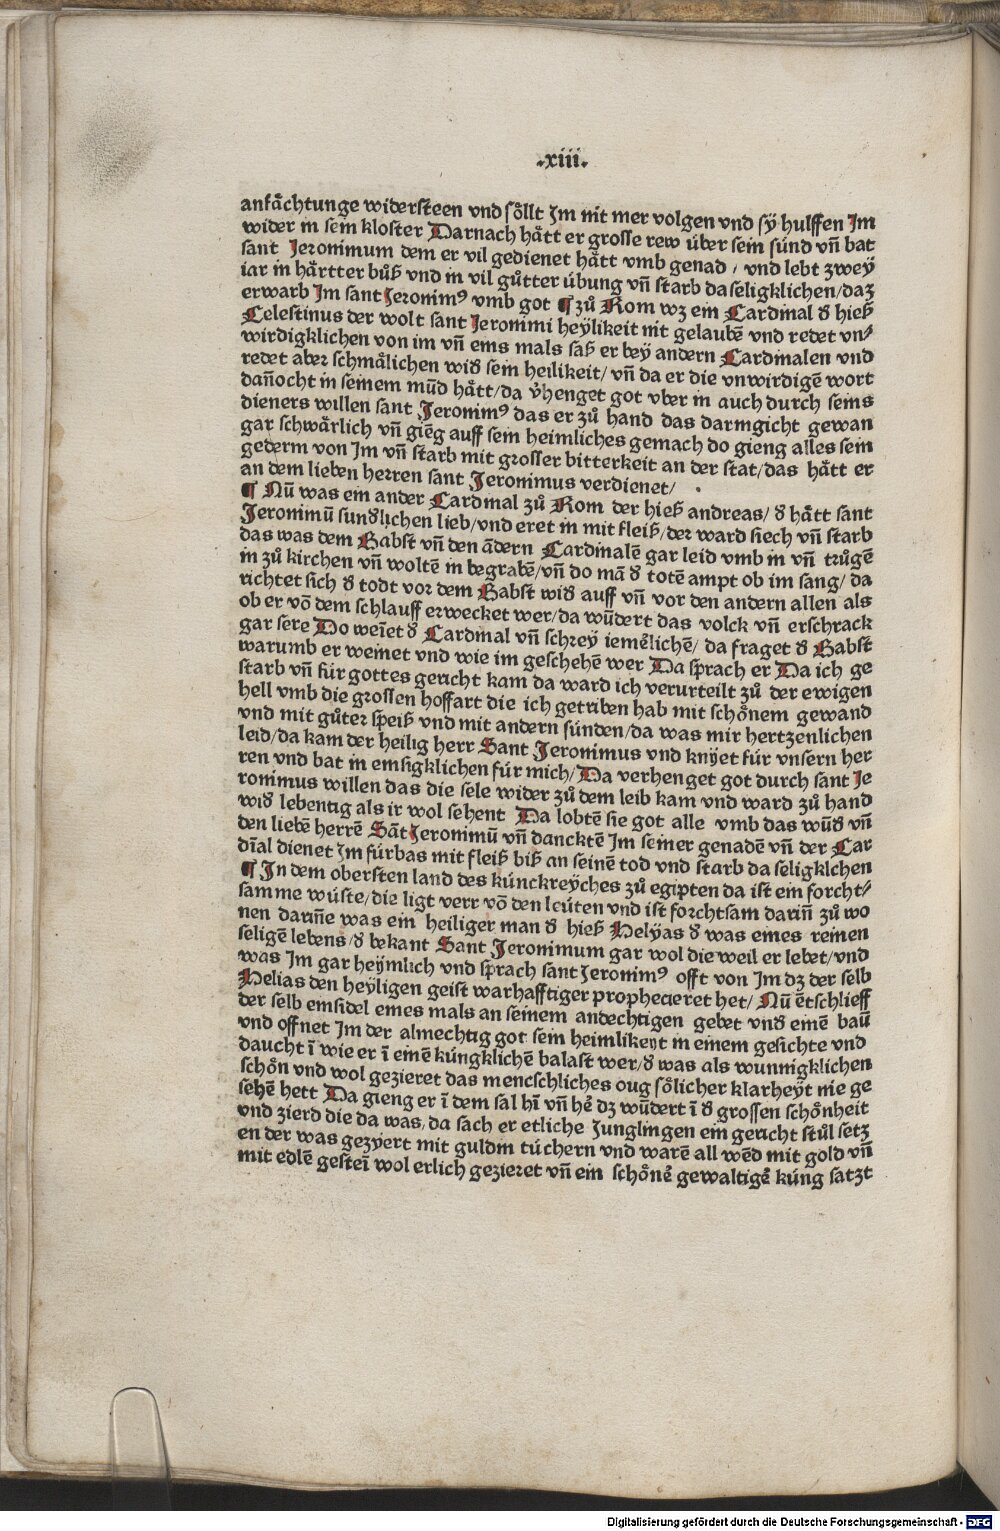 .xiii.
anfåchtunge widersteen vnd sôllt Jm nit mer volgen vnd sÿ hulffen Jm
wider in sein kloster Darnach hått er grosse rew über sein sünd vñ bat
sant Jeronimum dem er vil gedienet hått vmb genad / vnd lebt zweÿ
iar in hårtter bůß vnd in vil gůtter übung vñ starb da seligklichen/daz
erwarb Jm sant Jeronimꝰ vmb got ¶ zů Rom wz ein Cardinal ð hieß
Celestinus der wolt sant Jeronimi heÿlikeit nit gelaubē vnd redet vn⸗
wirdigklichen von im vñ eins mals saß er beÿ andern Cardinalen vnd
redet aber schmålichen wið sein heilikeit/ vñ da er die vnwirdigē wort
dañocht in seinem mūd hått/da v̓henget got vber in auch durch seins
dieners willen sant Jeronimꝰ das er zů hand das darmgicht gewan
gar schwårlich vñ giēg auff sein heimliches gemach do gieng alles sein
gederm von Jm vñ starb mit grosser bitterkeit an der stat/das hått er
an dem lieben herren sant Jeronimus verdienet/
¶ Nū was ein ander Cardinal zů Rom der hieß andreas/ ð hått sant
Jeronimū sunðlichen lieb/vnd eret in mit fleiß/der ward siech vñ starb
das was dem Babst vñ den ādern Cardinalē gar leid vmb in vñ trůgē
in zů kirchen vñ woltē in begrabē/vñ do mā ð totē ampt ob im sang/ da
richtet sich ð todt vor dem Babst wið auff vñ vor den andern allen als
ob er vō dem schlauff erwecket wer/da wūdert das volck vñ erschrack
gar sere Do weīet ð Cardinal vñ schreÿ iemêlichē/ da fraget ð Babst
warumb er weinet vnd wie im geschehē wer Da sprach er Da ich ge
starb vñ für gottes gericht kam da ward ich verurteilt zů der ewigen
hell vmb die grossen hoffart die ich getriben hab mit schônem gewand
vnd mit gůter speiß vnd mit andern sünden/da was mir hertzenlichen
leid/da kam der heilig herr Sant Jeronimus vnd knÿet für vnsern her
ren vnd bat in emsigklichen für mich/ Da verhenget got durch sant Je
ronimus willen das die sele wider zů dem leib kam vnd ward zů hand
wið lebentig als ir wol sehent Da lobtē sie got alle vmb das wūð vñ
den liebē herrē Sāt Jeronimū vñ danctē Jm seiner genadē vñ der Car
dīal dienet Jm fürbas mit fleiß biß an seinē tod vnd starb da seligklchen
¶ Jn dem obersten land des künckreÿches zů egipten da ist ein forcht⸗
samme wüste/die ligt verr vō den leüten vnd ist forchtsam dariñ zů wo
nen dariñe was ein heiliger man ð hieß Helÿas ð was eines reinen
seligē lebens/ð bekant Sant Jeronimum gar wol die weil er lebet/vnd
was Jm gar heÿmlich vnd sprach sant Jeronimꝰ offt von Jm dz der selb
Helias den heÿligen geist warhafftiger propheciereet het/ Nū ētschlieff
der selb einsidel eines mals an seinem andechtigen gebet vnð einē baū
vnd offnet Jm der almechtig got sein heimlikeyt in einem gesichte vnd
daucht ī wie er ī einē küngklichē balast wer/ð was als wunnigklichen
schôn vnd wol gezieret das mencschliches oug sôlicher klarheÿt nie ge
sehē hett Da gieng er ī dem sal hī vñ he᷑ dz wūdert ī ð grossen schônheit
vnd zierd die da was/da sach er etliche Junglingen ein gericht stůl setz
en der was gezyert mit guldin tüchern vnd warē all wēd mit gold vñ
mit edlē gesteī wol erlich gezieret vñ ein schône᷑ gewaltige᷑ küng satzt
Digitalisierung gefördert durch die Deutsche Forschungsgemeinschaft - DFG